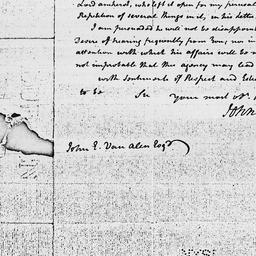 Lord Amherst, who left it open for my perusal
Repetition of several things in it, in his letter
I am persuaded he will not be disappoin
Desire of hearing frequently from you, nor in
attention with which his affairs will be m
not improbable that this agency may lead
with Sentiments of Respect and Este
to be Sir your most ob.
John
John E. Van Alen Esqr.